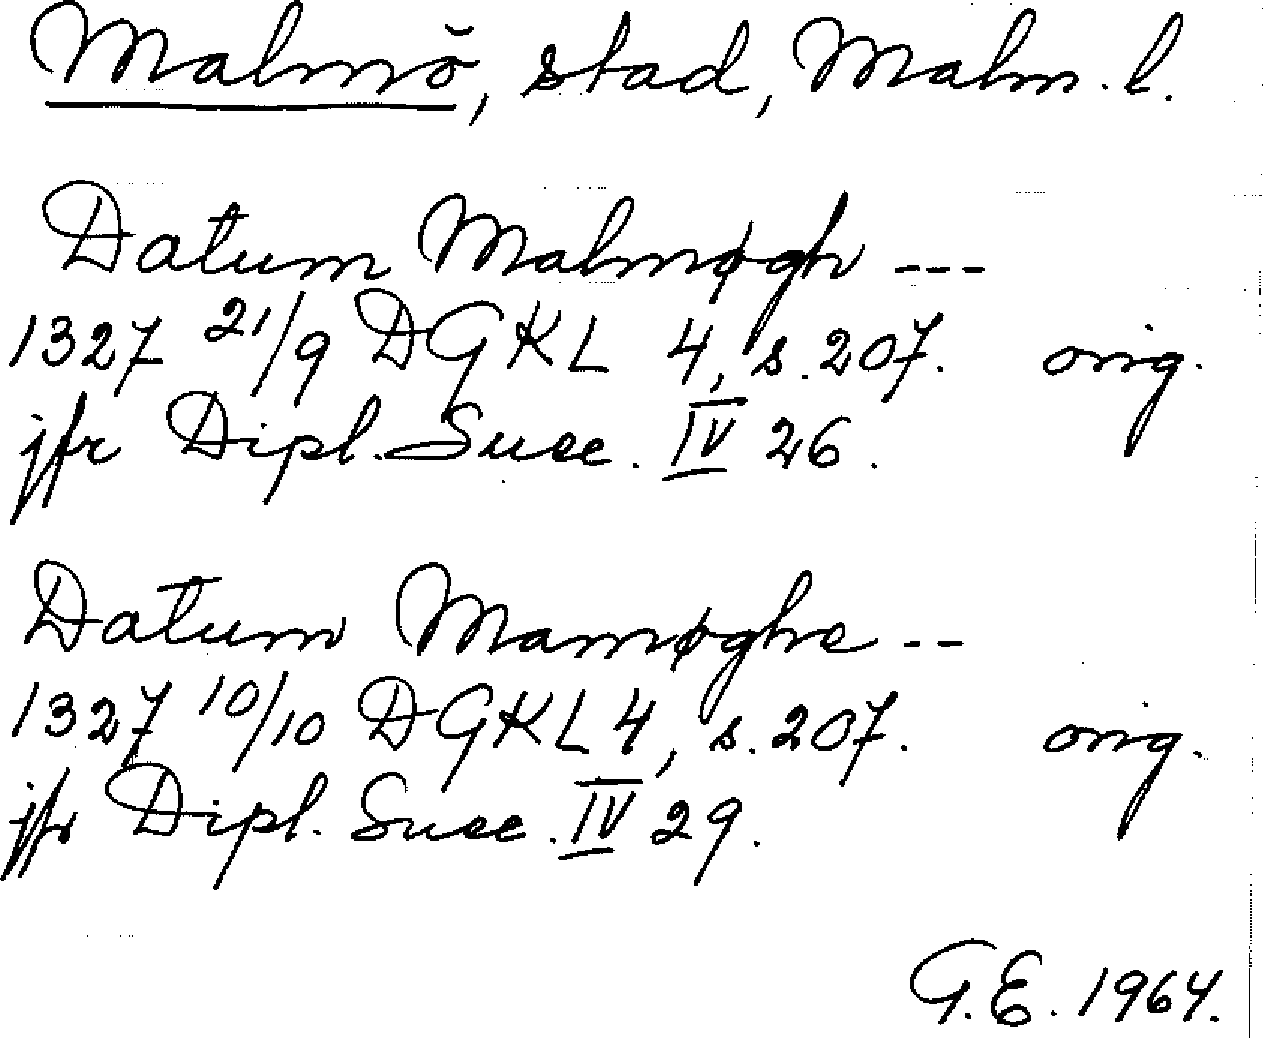 Malmö, stad, Malm. l.
Datum Malmøgh ---
1327 21/9 DGKL 4, s. 207. orig.
jfr Dipl. Suec. IV 26.
Datum Mamøghe --
1327 10/10 DGKL 4, s. 207. orig.
jfr Dipl. Suec. IV 29.
G.E. 1964.